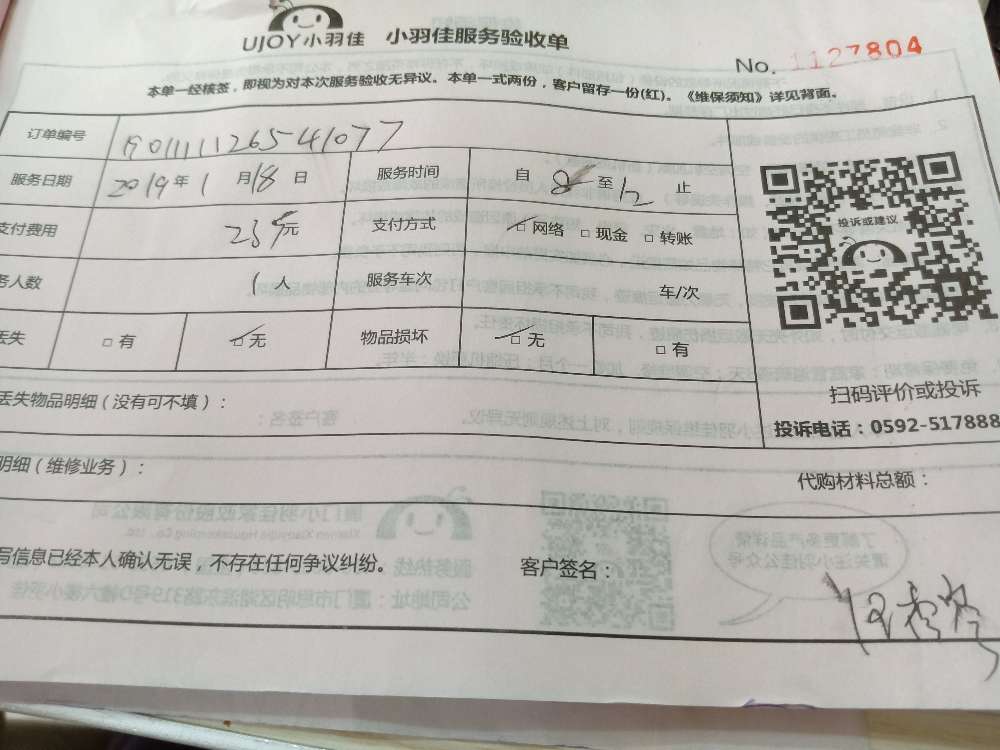 UJOY小羽佳 小羽佳服务验收单
No. 1127804
本单一经核签，即视为对本次服务验收无异议。本单一式两份，客户留存一份(红)。《维保须知》详见背面。
订单编号
服务日期 2019年1月18日 服务时间 自8至12止
支付费用 元 支付方式 □网络 □现金 □转账
务人数 1人 服务车次 车/次
丢失 □有 □无 物品损坏 □无 □有
投诉或建议
扫码评价或投诉
投诉电话：0592-517888
丢失物品明细（没有可不填）：
明细（维修业务）： 代购材料总额：
写信息已经本人确认无误，不存在任何争议纠纷。 客户签名：